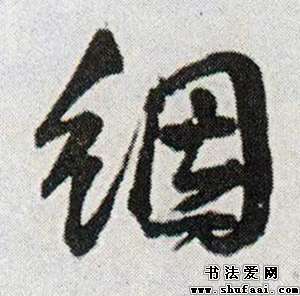 绸
书法爱网
www.shufaai.com